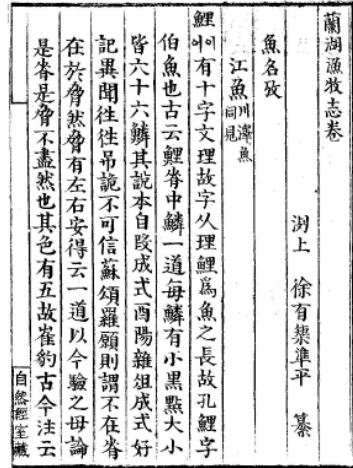 蘭湖漁牧志卷
魚名攷
洌上 徐有榘準平 纂
江魚川澤魚同見
鯉이어有十字文理故字从理鯉爲魚之長故孔鯉字
伯魚也古云鯉脊中鱗一道每鱗有小黑點大小
皆六十六鱗其說本自段成式酉陽雜俎成式好
記異聞徃徃弔詭不可信蘇頌羅願則謂不在脊
在於脅然脅有左右安得云一道以今驗之毋論
是脊是脅不盡然也其色有五故崔豹古今注云
自然經室藏